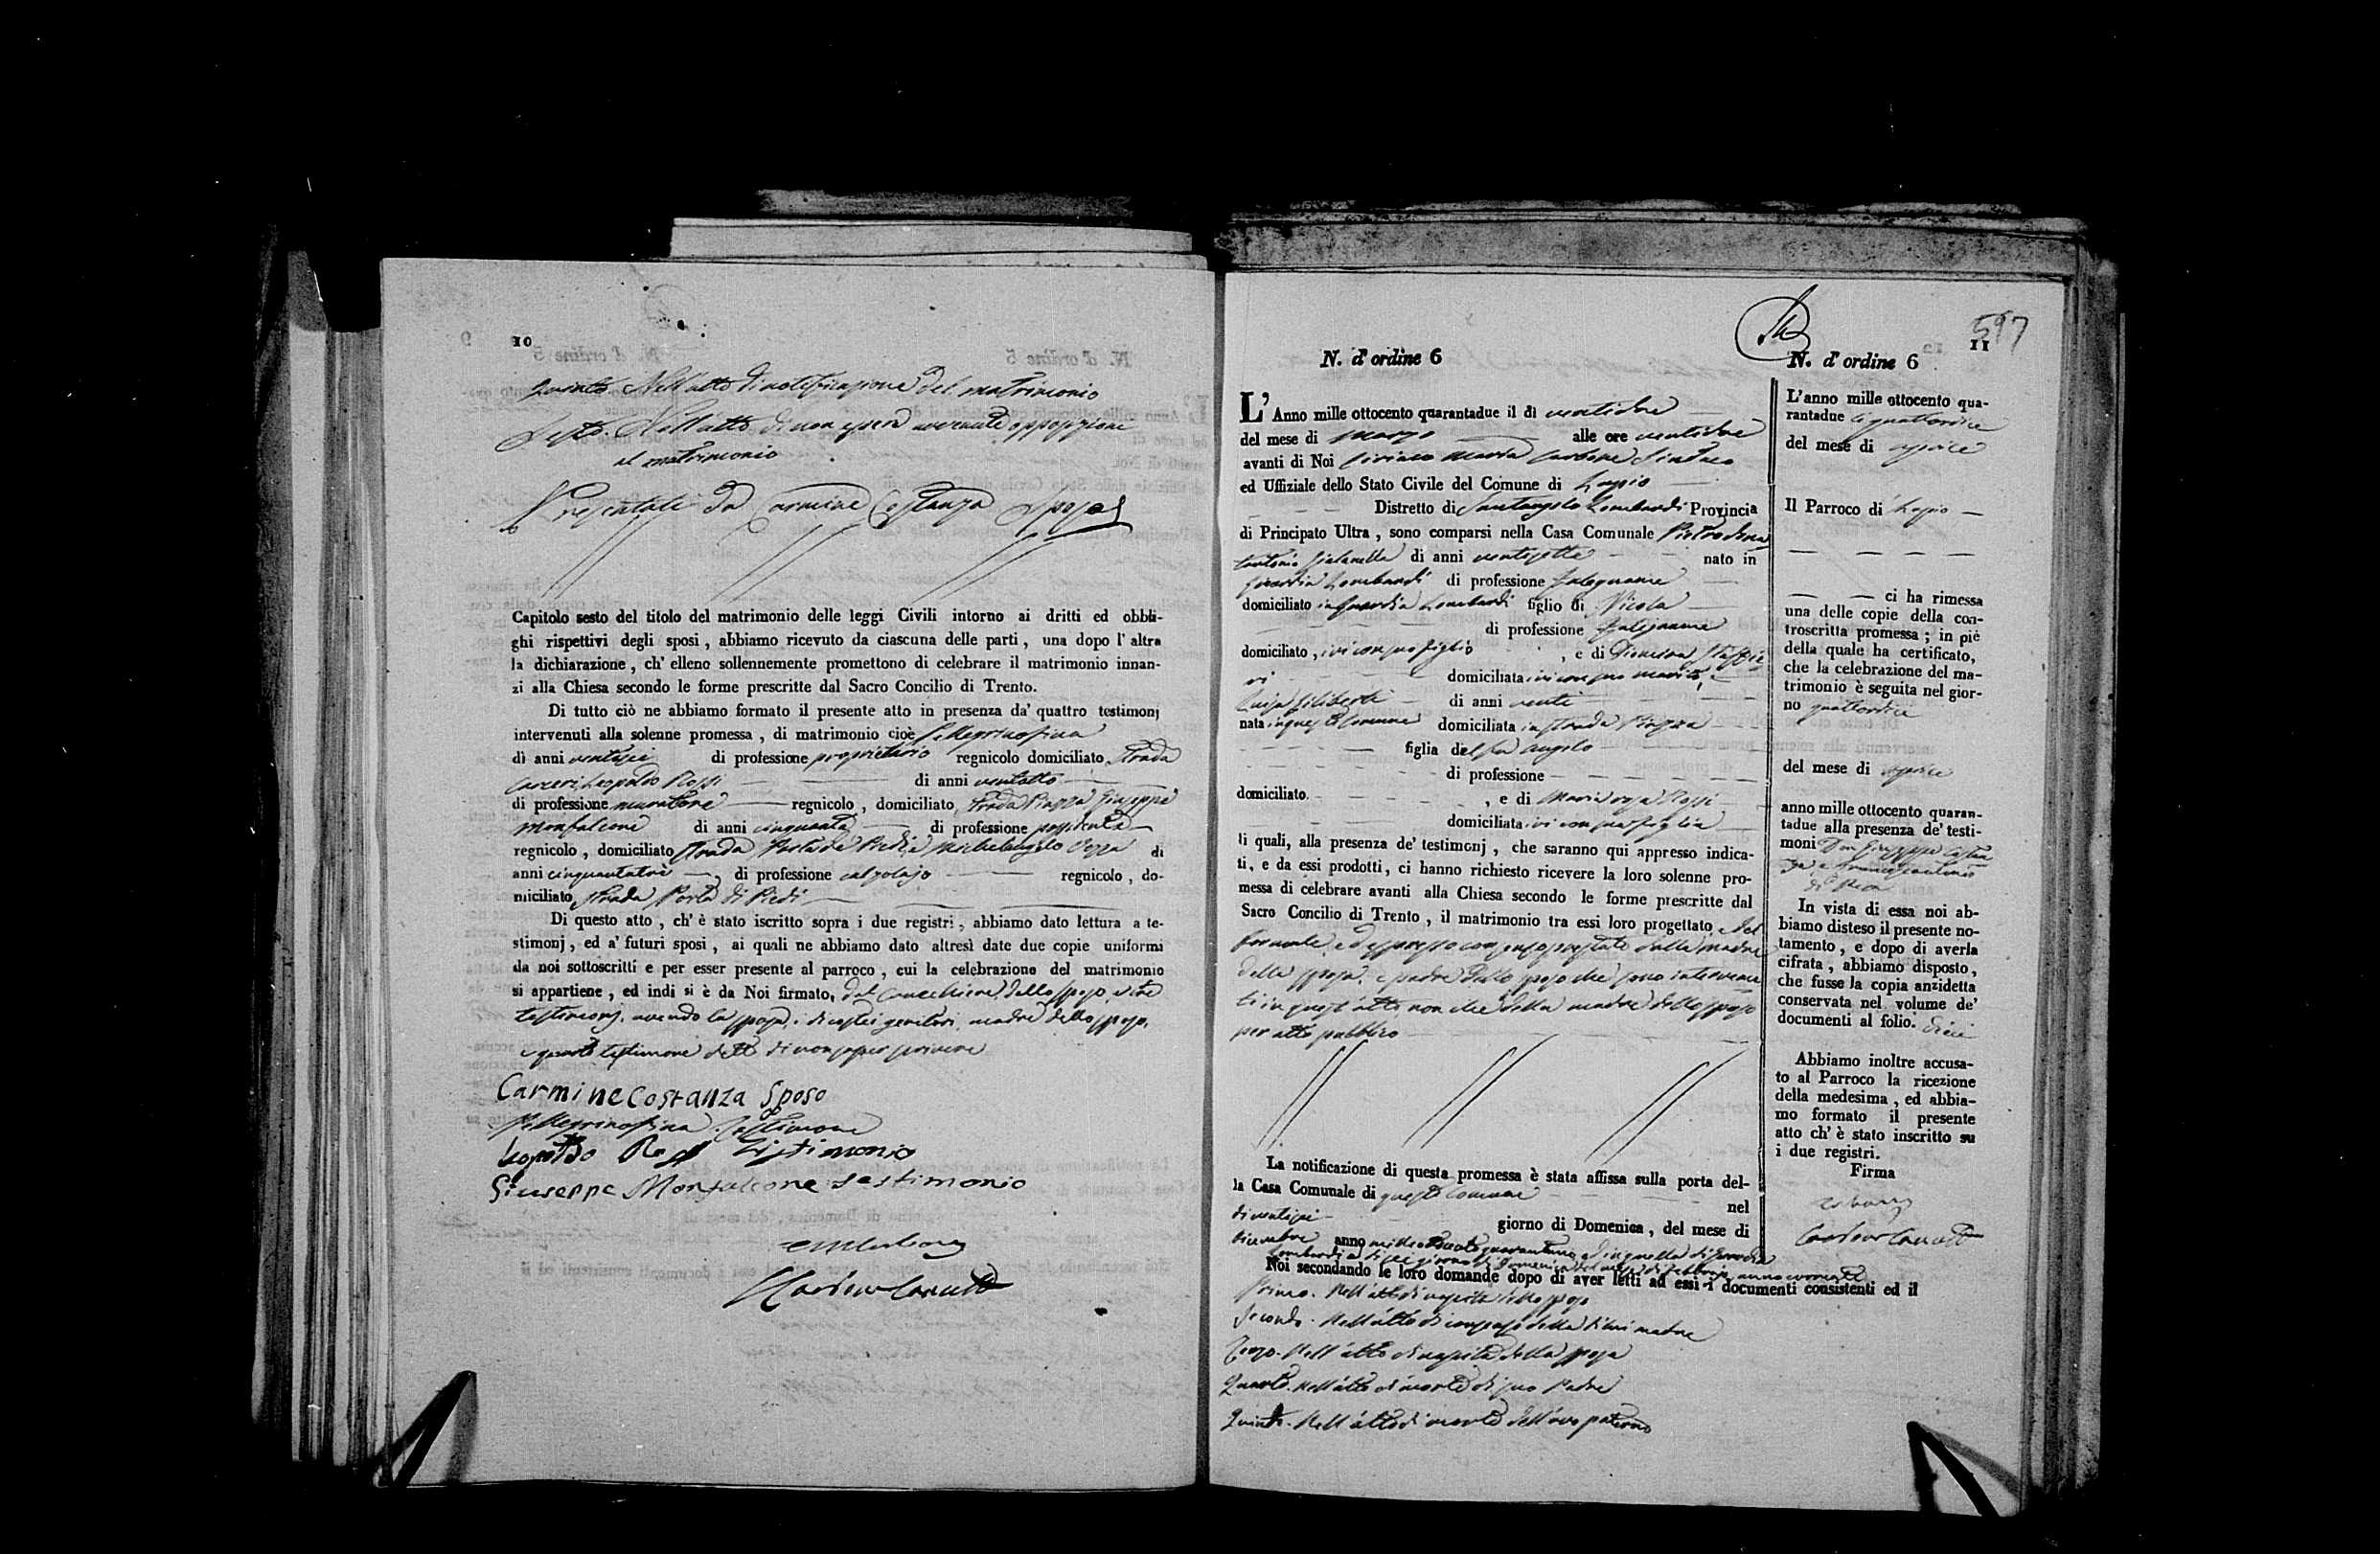 10
Quinto Nell'atto di notificazione del matrimonio
Sesto. Nell'atto di non essere avvenuta opposizione
al matrimonio
Presentati da Carmine Costanza Sposo
Capitolo sesto del titolo del matrimonio delle leggi Civili intorno ai dritti ed obbli-
ghi rispettivi degli sposi, abbiamo ricevuto da ciascuna delle parti, una dopo l' altra
la dichiarazione, ch' elleno sollennemente promettono di celebrare il matrimonio innan-
zi alla Chiesa secondo le forme prescritte dal Sacro Concilio di Trento.
Di tutto ciò ne abbiamo formato il presente atto in presenza da' quattro testimonj
intervenuti alla solenne promessa, di matrimonio cioè Pellegrino Fina
di anni ventisei di professione proprietario regnicolo domiciliato, Strada
Carceri, Leopoldo Rossi di anni ventotto
di professione muratore regnicolo, domiciliato, Strada Piazza Giuseppe
Monfalcone di anni cinquanta di professione possidente
regnicolo, domiciliato Strada Porta di Piedi, e Michelangelo di
anni cinquantatre, di professione calzolajo regnicolo, do-
miciliato, Strada Porta di Piedi
Di questo atto, ch' è stato iscritto sopra i due registri, abbiamo dato lettura a te-
stimonj, ed a' futuri sposi, ai quali ne abbiamo dato altresì date due copie uniformi
da noi sottoscritti e per esser presente al parroco, cui la celebrazione del matrimonio
si appartiene, ed indi si è da Noi firmato, dal Cancelliere, dallo sposo, e tre
testimonj, avendo la sposa, i di costei genitori, madre dello sposo,
e quarto testimone detto di non saper scrivere
Carmine Costanza Sposo
Pellegrino Fina Testimone
Leopoldo Rossi Testimonio
Giuseppe Monfalcone testimonio
597
11
N. d' ordine 6
L' Anno mille ottocento quarantadue il dì ventidue
del mese di Marzo alle ore ventidue
avanti di Noi Ciriaco Maria Carbone Sindaco
ed Uffiziale dello Stato Civile del Comune di Lapio
Distretto di Santangelo Lombardi Provincia
di Principato Ultra, sono comparsi nella Casa Comunale Pietrodona
tantonio di anni ventisette nato in
Guardia Lombardi di professione Falegname
domiciliato in Guardia Lombardi figlio di Nicola
di professione Falegname
domiciliato, ivi con suo figlio, e di
domiciliata ivi con suo marito,
Luisa Ciliberti di anni venti
nata in questo Comune domiciliata in strada Piazza
figlia del fu Angelo
di professione
domiciliato, e di Maria Rosa Rossi
domiciliata ivi con sua figlia
li quali, alla presenza de' testimonj, che saranno qui appresso indica-
ti, e da essi prodotti, ci hanno richiesto ricevere la loro solenne pro-
messa di celebrare avanti alla Chiesa secondo le forme prescritte dal
Sacro Concilio di Trento, il matrimonio tra essi loro progettato, del
formale, ed espresso consenso prestato dalla madre
della sposa, e padre dello sposo che sono intervenu
ti in quest'atto non che della madre dello sposo
per atto pubblico
La notificazione di questa promessa è stata affissa sulla porta del-
la Casa Comunale di questo Comune nel
di ventisei giorno di Domenica, del mese di
Dicembre anno mille ottocentoquarantuno, ed in quella di Guardia
Lombardi a dì sei giorno di Domenica del mese di Febbraio anno corrente
Noi secondando le loro domande dopo di aver letti ad essi i documenti consistenti ed il
Primo. Nell'atto di nascita dello sposo
Secondo. Nell'atto di consenso della di lui madre
Terzo. Nell'atto di nascita della sposa
Quarto. Nell'atto di morte di suo Padre
Quinto. Nell'atto di morte dell'avo paterno
N. d' ordine 6
L'anno mille ottocento qua-
rantadue li quattordici
del mese di aprile
Il Parroco di Lapio
ci ha rimessa
una delle copie della con-
troscritta promessa; in piè
della quale ha certificato,
che la celebrazione del ma-
trimonio è seguita nel gior-
no quattordici
del mese di aprile
anno mille ottocento quaran-
tadue alla presenza de' testi-
moni Don Giuseppe
In vista di essa noi ab-
biamo disteso il presente no-
tamento, e dopo di averla
cifrata, abbiamo disposto,
che fusse la copia anzidetta
conservata nel volume de'
documenti al folio. dieci
Abbiamo inoltre accusa-
to al Parroco la ricezione
della medesima, ed abbia-
mo formato il presente
atto ch' è stato inscritto su
i due registri.
Firma